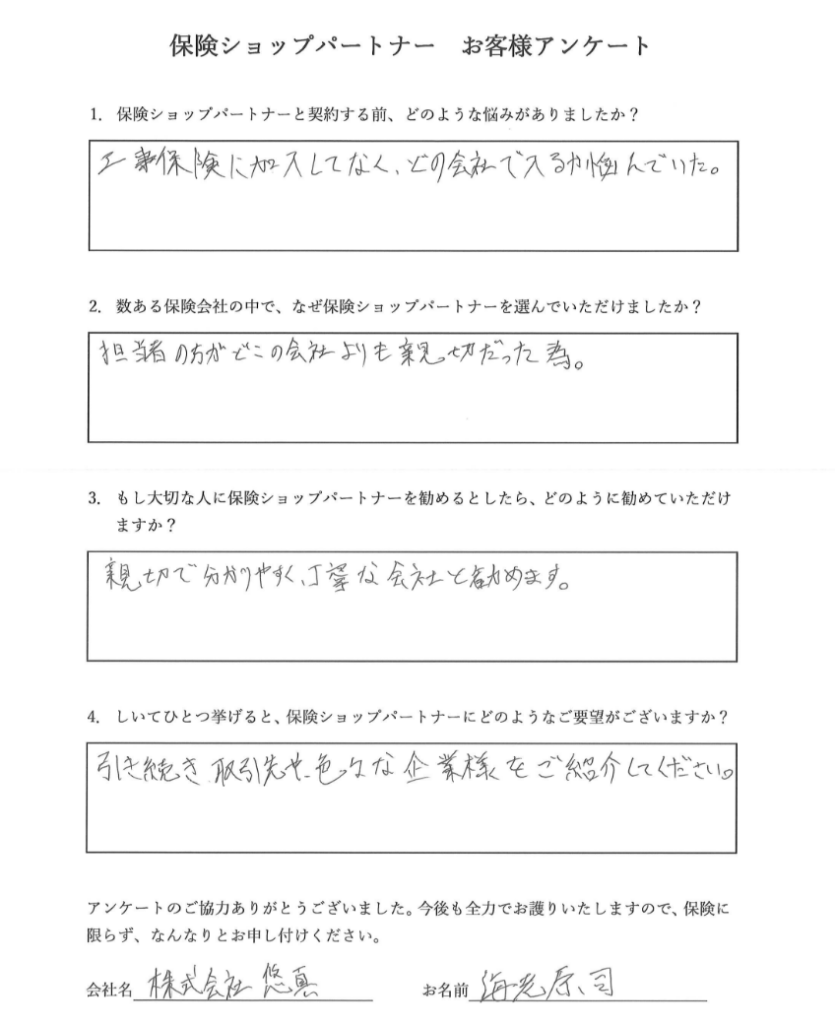 保険ショップパートナー　お客様アンケート
1. 保険ショップパートナーと契約する前、どのような悩みがありましたか？
工事保険に加入してなく、どの会社で入るか悩んでいた。
2. 数ある保険会社の中で、なぜ保険ショップパートナーを選んでいただけましたか？
担当者の方がどこの会社よりも親切だった為。
3. もし大切な人に保険ショップパートナーを勧めるとしたら、どのように勧めていただけ
ますか？
親切で分かりやすく、丁寧な会社と勧めます。
4. しいてひとつ挙げると、保険ショップパートナーにどのようなご要望がございますか？
引き続き取引先や、色々な企業様をご紹介してください。
アンケートのご協力ありがとうございました。今後も全力でお護りいたしますので、保険に
限らず、なんなりとお申し付けください。
会社名 株式会社 悠真　お名前 海老原 司